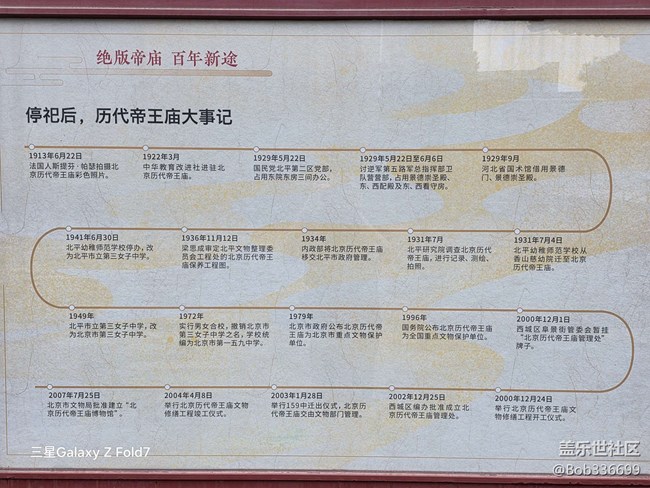 绝版帝庙 百年新途
停祀后，历代帝王庙大事记
1913年6月22日
法国人斯提芬·帕瑟拍摄北
京历代帝王庙彩色照片。
1922年3月
中华教育改进社进驻北
京历代帝王庙。
1929年5月22日
国民党北平第二区党部，
占用东院东房三间办公。
1929年5月22日至6月6日
讨逆军第五路军总指挥部卫
队营营部，占用景德崇圣殿、
东、西配殿及东、西看守房。
1929年9月
河北省国术馆借用景德
门、景德崇圣殿。
1931年7月4日
北平幼稚师范学校从
香山慈幼院迁至北京
历代帝王庙。
1931年7月
北平研究院调查北京历代
帝王庙，进行记录、测绘、
拍照。
1934年
内政部将北京历代帝王庙
移交北平市政府管理。
1936年11月12日
梁思成审定北平文物整理委
员会工程处的北京历代帝王
庙保养工程图。
1941年6月30日
北平幼稚师范学校停办，改
为北平市立第三女子中学。
1949年
北平市立第三女子中学，改
为北京市第三女子中学。
1972年
实行男女合校，撤销北京市
第三女子中学之名，学校统
编为北京市第一五九中学。
1979年
北京市政府公布北京历代帝
王庙为北京市重点文物保护
单位。
1996年
国务院公布北京历代帝王庙
为全国重点文物保护单位。
2000年12月1日
西城区阜景街管委会暂挂
“北京历代帝王庙管理处”
牌子。
2000年12月24日
举行北京历代帝王庙文
物修缮工程开工仪式。
2002年12月25日
西城区编办批准成立北
京历代帝王庙管理处。
2003年1月28日
举行159中迁出仪式，北京历
代帝王庙交由文物部门管理。
2004年4月8日
举行北京历代帝王庙文物
修缮工程竣工仪式。
2007年7月25日
北京市文物局批准建立“北
京历代帝王庙博物馆”。
三星Galaxy Z Fold7
盖乐世社区
@Bob336699